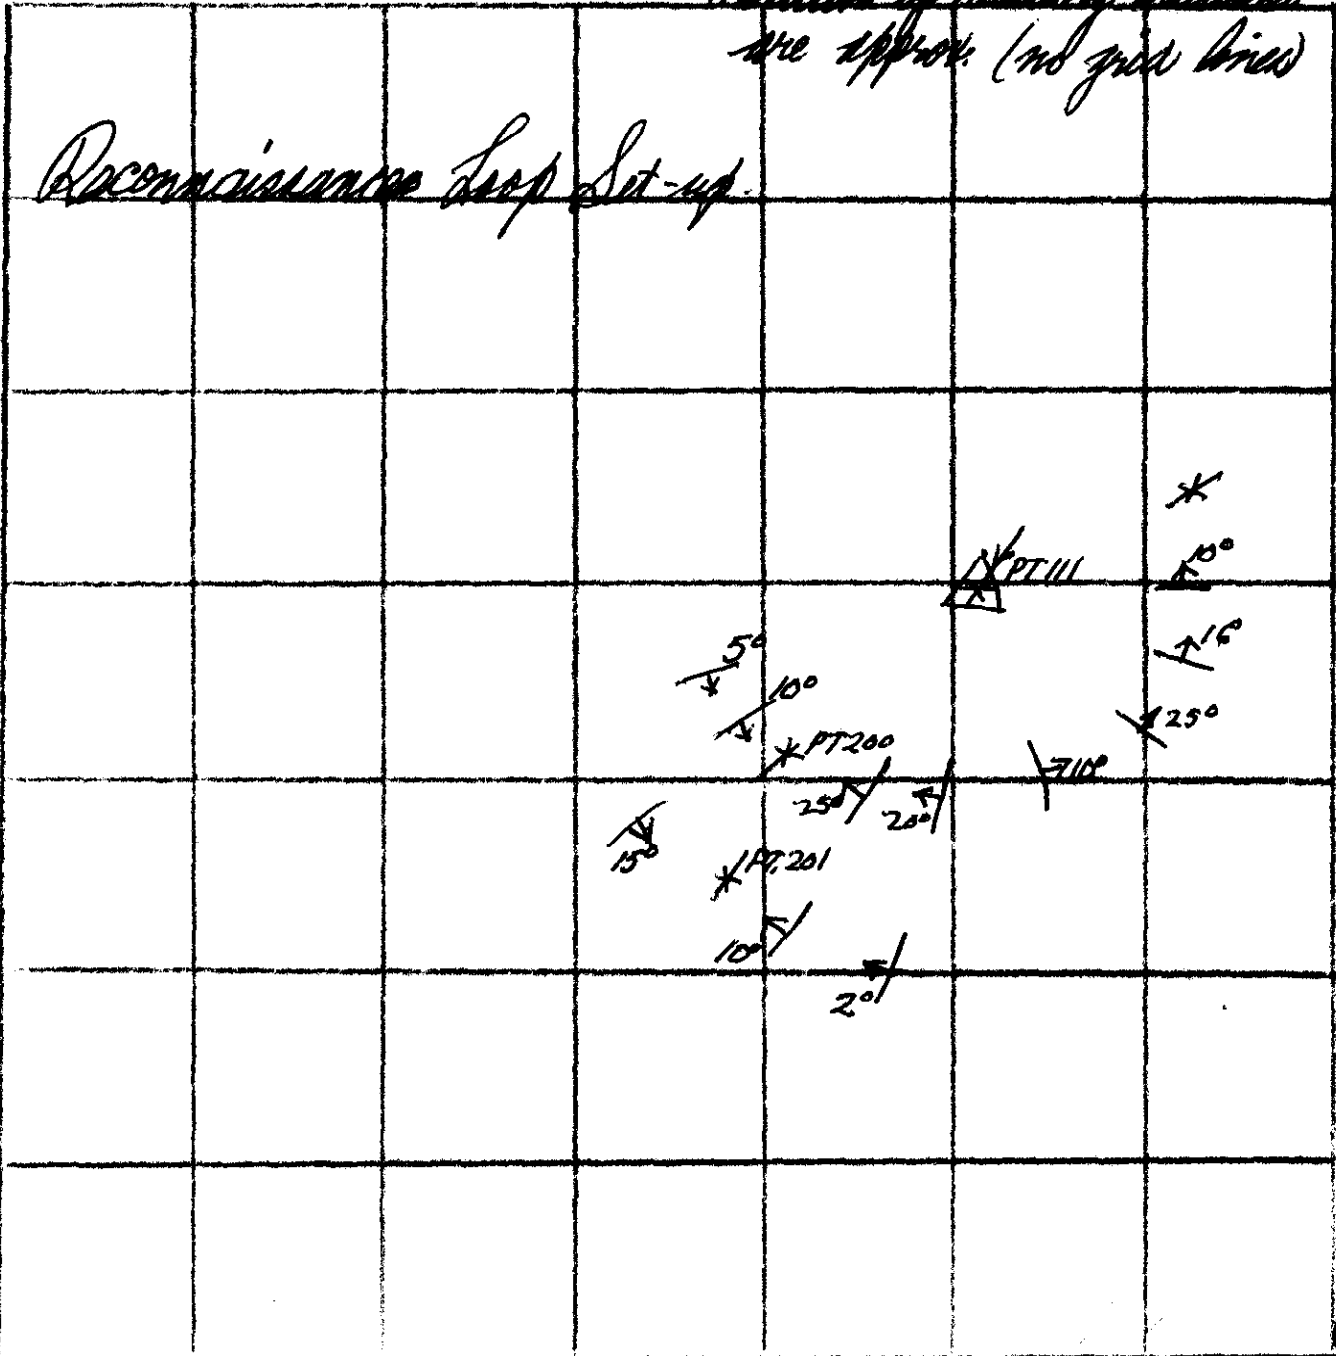 are approx. (no grid lines)
Reconnaissance Loop Set-up.
10°
PT 111
16°
5°
10°
25°
PT 200
10°
25°
20°
15°
PT. 201
10°
2°